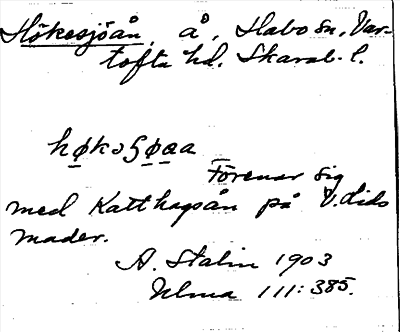 Hökesjöån, å, Habo sn, Var-
tofta hd. Skarab. l.
høkəʃøaa
Förenar sig
med Katthagsån på V. dids
mader.
A. Stalin 1903
Ulma 111:385.